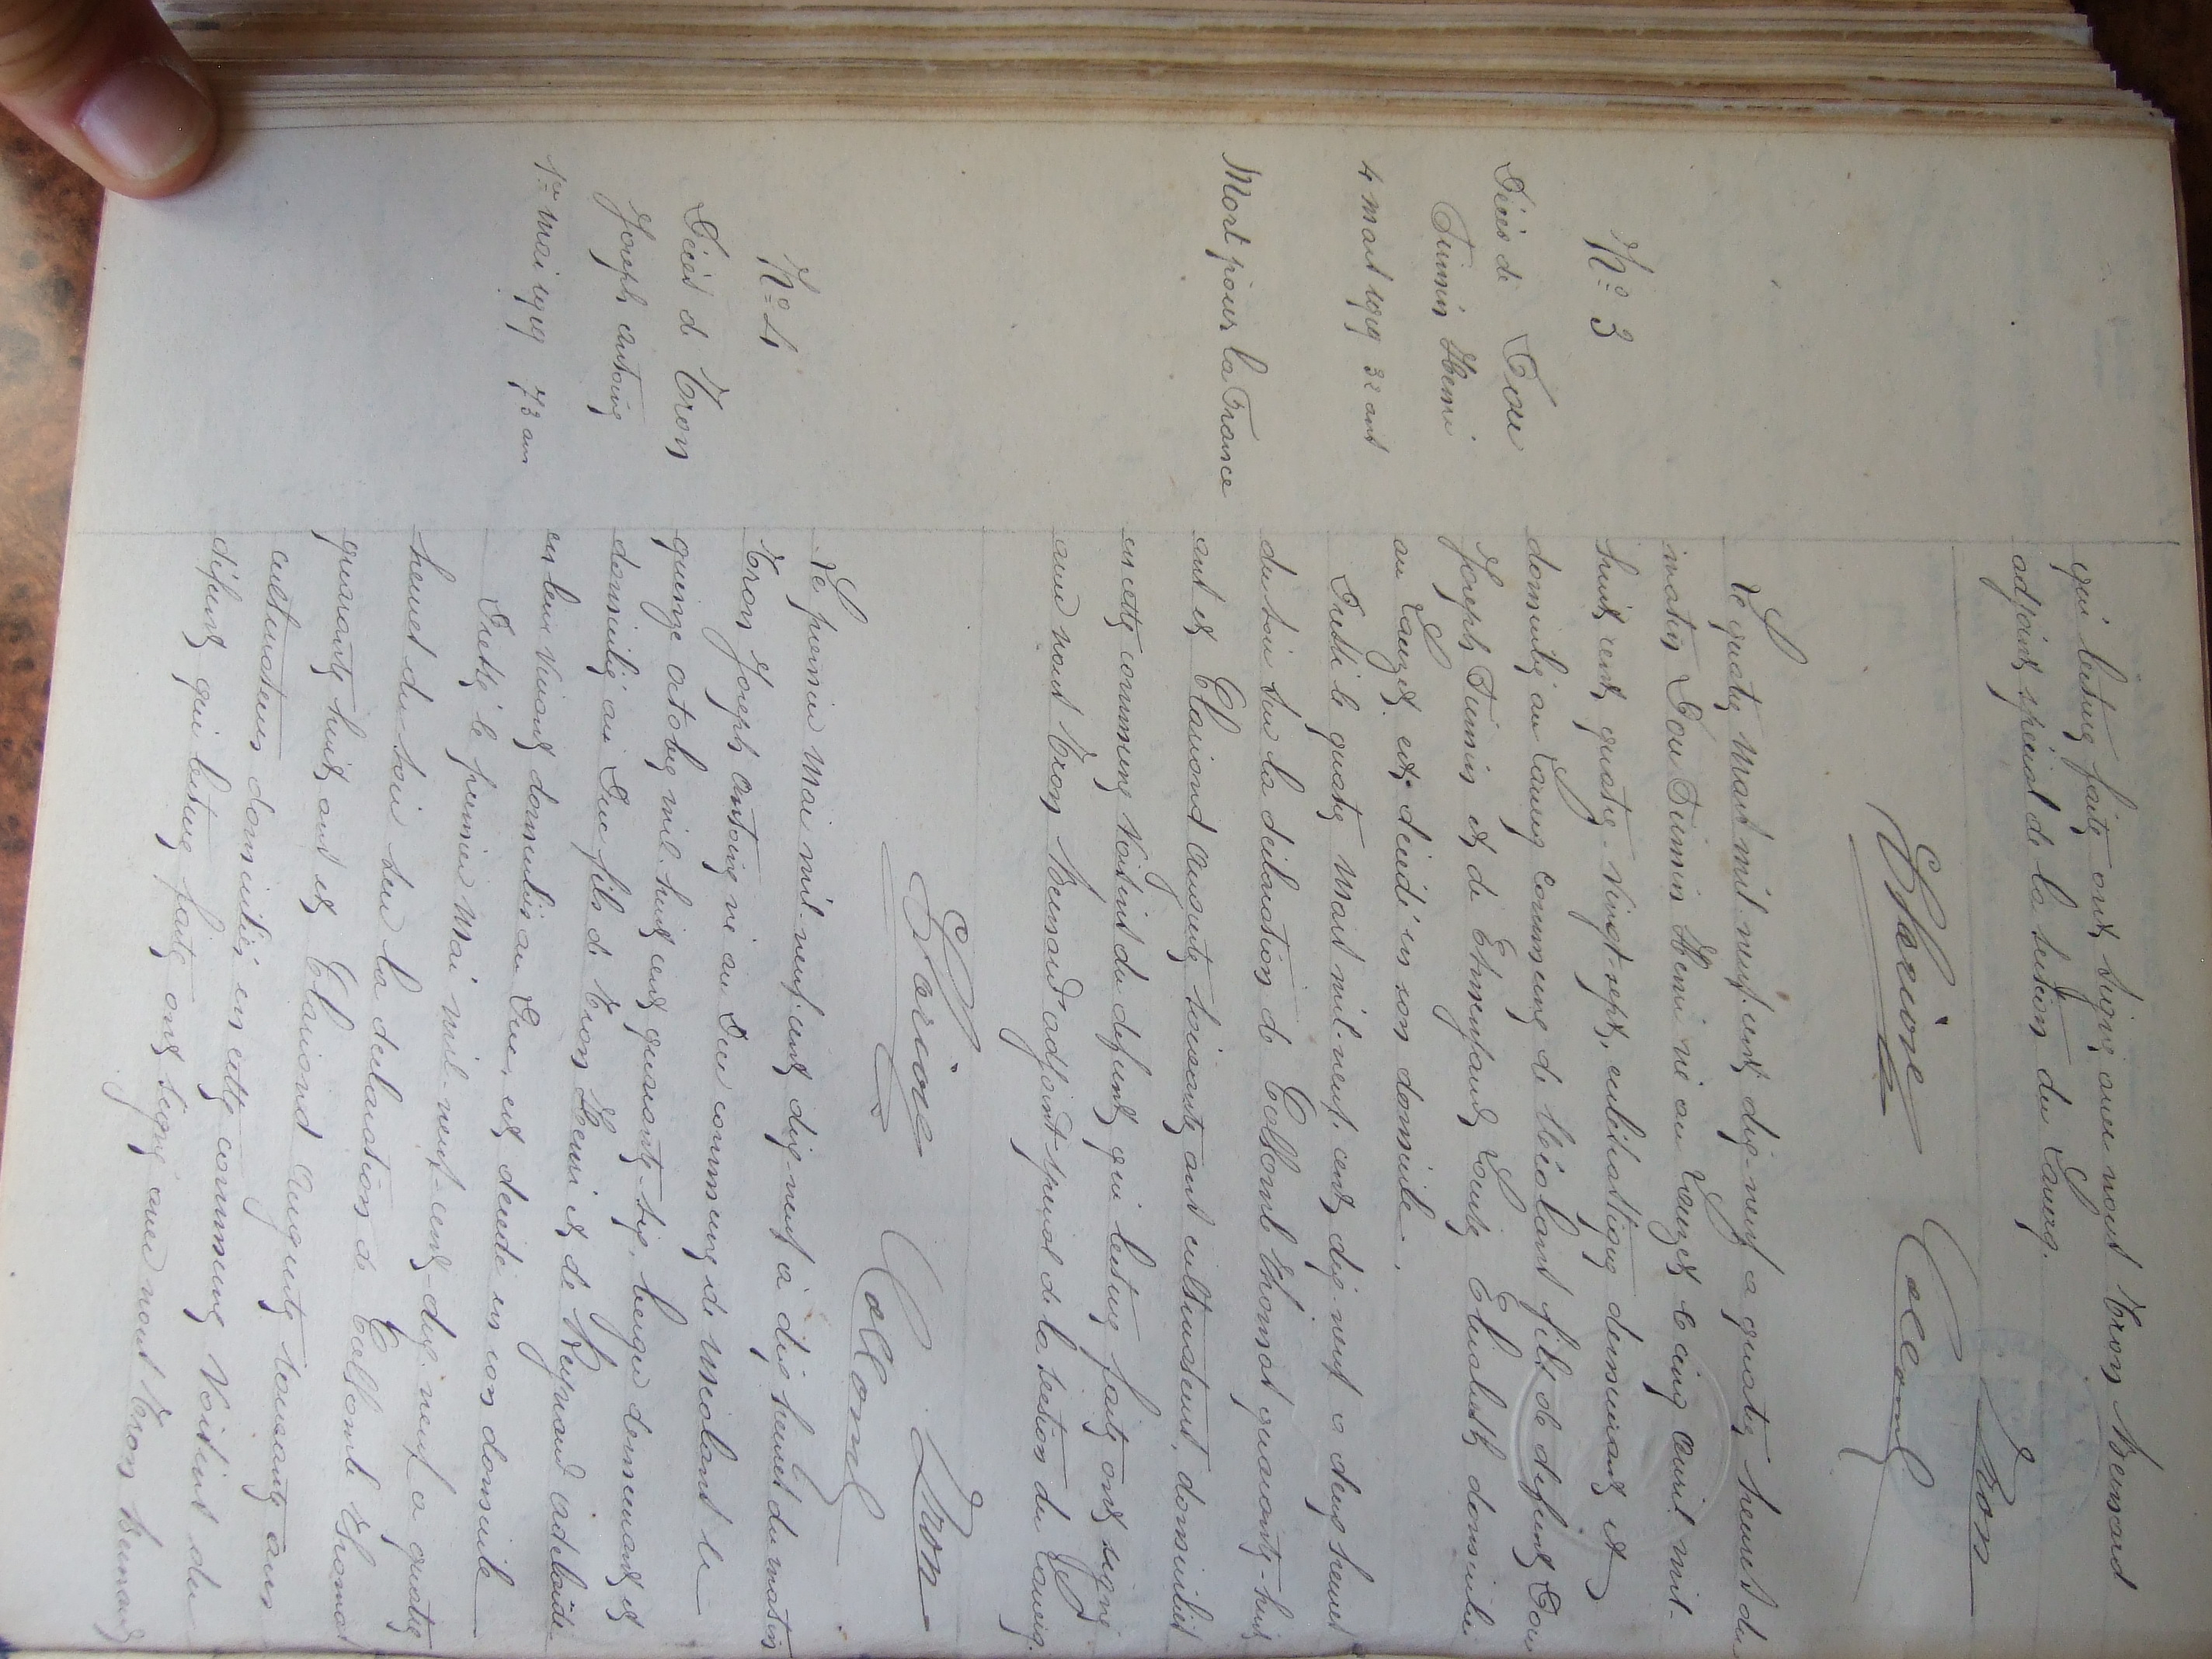 qui lecture faite ont signé avec nous Tron Bernard
adjoint spécial de la section du Lauzey.
Clarione Tron
Collomb
N° 3
Décès de Dou
Firmin Henri
4 mars 1919 32 ans
Mort pour la France
Le quatre mars mil neuf cent dix-neuf a quatre heures du
matin Dou Firmin Henri né au Lauzet le cinq avril mil-
huit cent quatre-vingt-sept, cultivateur demeurant et
domicilié au Lauzet commune de Méolans fils de defunt Dou
Joseph Firmin et de Louise Elisabeth domiciliée
au Lauzet est décédé en son domicile.
Dressé le quatre mars mil neuf cent dix neuf a deux heures
du soir sur la déclaration de Collomb Thomas quarante-huit
ans et Clariond Auguste soixante ans cultivateurs, domiciliés
en cette commune voisins du defunt qui lecture faite ont signé
avec nous Tron Bernard adjoint spécial de la section du Lauzey.
Clarione Tron
Collomb
N° 4
Décès de Tron
Joseph Antoine
1er mai 1919 73 ans
Le premier Mai mil neuf cent dix neuf à dix heures du matin
Tron Joseph Antoine né au commune de Méolans le
quinze octobre mil huit cent quarante-six, berger demeurant et
domicilié au fils de Tron Henri et de Reynaud Adélaïde
en leur vivant domiciliés au est décédé en son domicile
Dressé le premier Mai mil-neuf-cent-dix neuf a quatre
heures du soir sur la déclaration de Collomb Thomas
quarante huit ans et Clariond Auguste soixante ans
cultivateurs domiciliés en cette commune voisins du
défunt qui lecture faite ont signé avec nous Tron Bernard